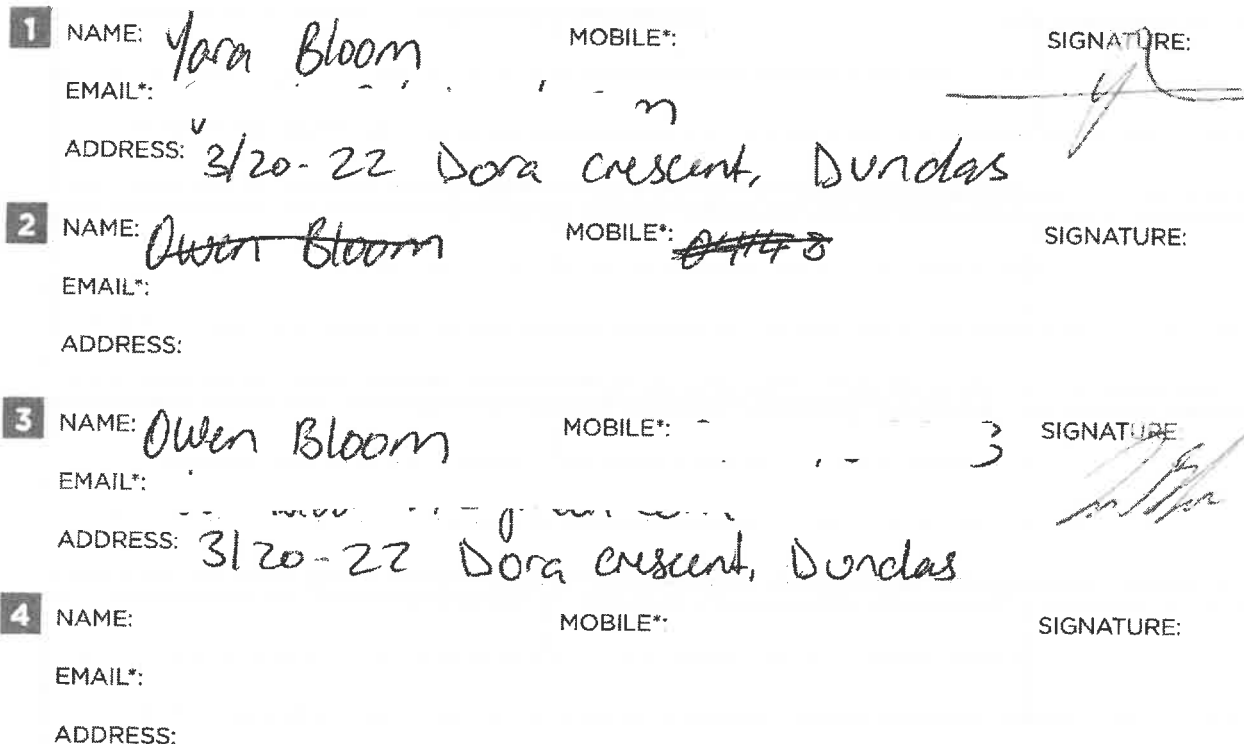 1 NAME: Yara Bloom MOBILE*: SIGNATURE:
EMAIL*:
ADDRESS: 3/20-22 Dora crescent, Dundas
2 NAME: Owen Bloom MOBILE*: SIGNATURE:
EMAIL*:
ADDRESS:
3 NAME: Owen Bloom MOBILE*: 3 SIGNATURE
EMAIL*:
ADDRESS: 3/20-22 Dora crescent, Dundas
4 NAME: MOBILE*: SIGNATURE:
EMAIL*:
ADDRESS: